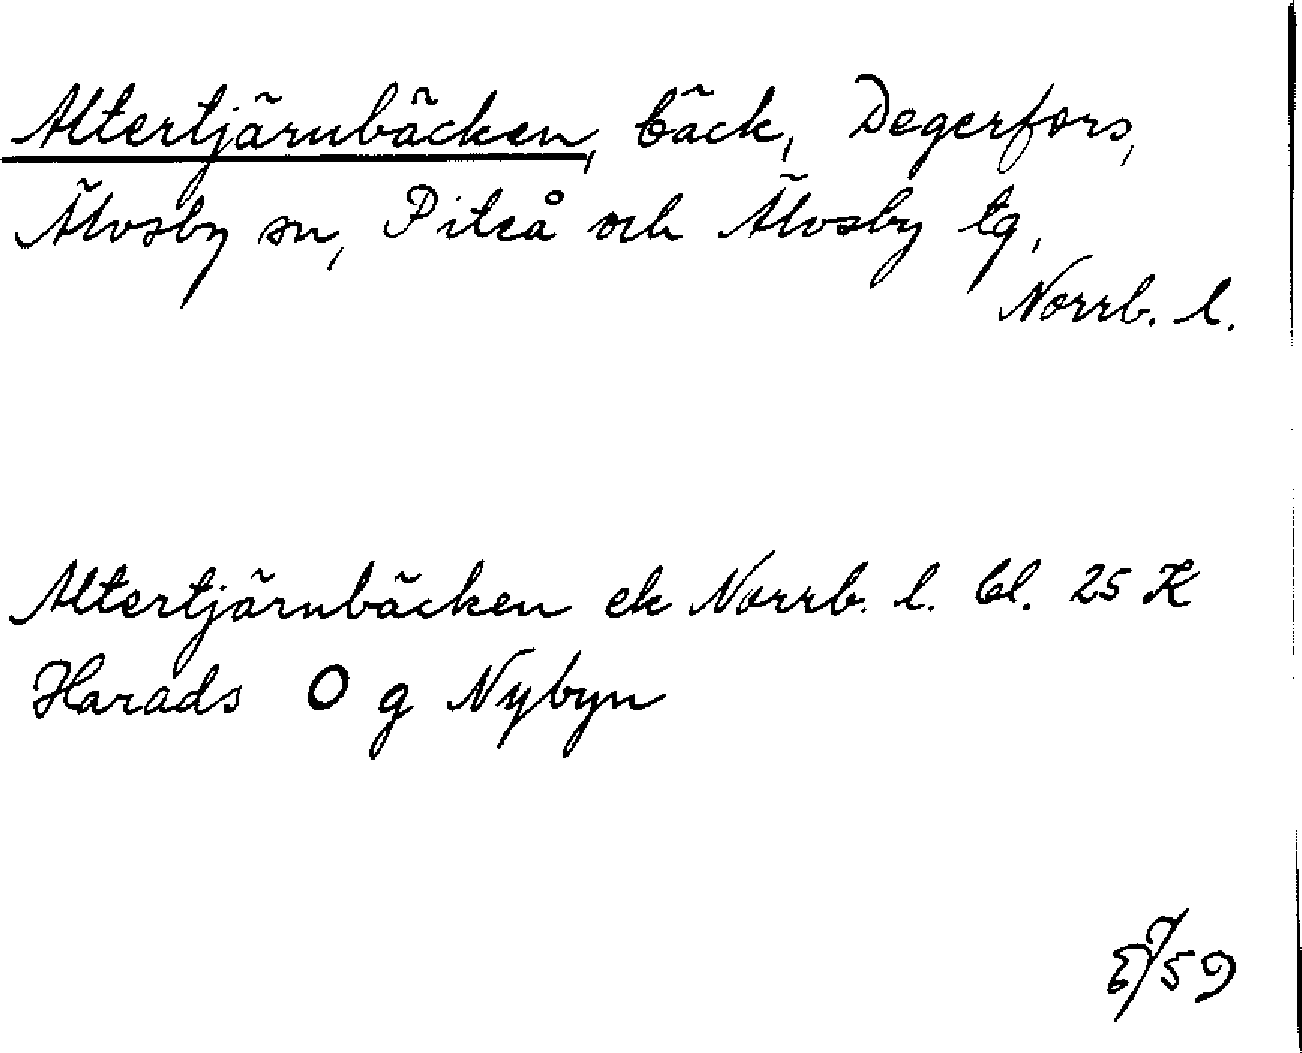 Altertjärnbäcken, bäck, Degerfors,
Älvsby sn, Piteå och Älvsby tg,
Norrb. l.
Altertjärnbäcken ek Norrb. l. bl. 25 K
Harads O g Nybyn